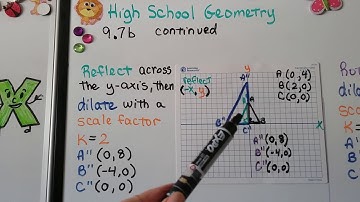 High School Geometry
9.7b continued
Reflect across
the y-axis, then
dilate with a
scale factor
K = 2
A'' (0, 8)
B'' (-4, 0)
C'' (0, 0)
reflect
(-x, y)
y
A''
A
B''
C''
x
A (0, 4)
B (2, 0)
C (0, 0)
A'' (0, 8)
B'' (-4, 0)
C'' (0, 0)
EXPO
Re
th
di
S
K
A
B
C